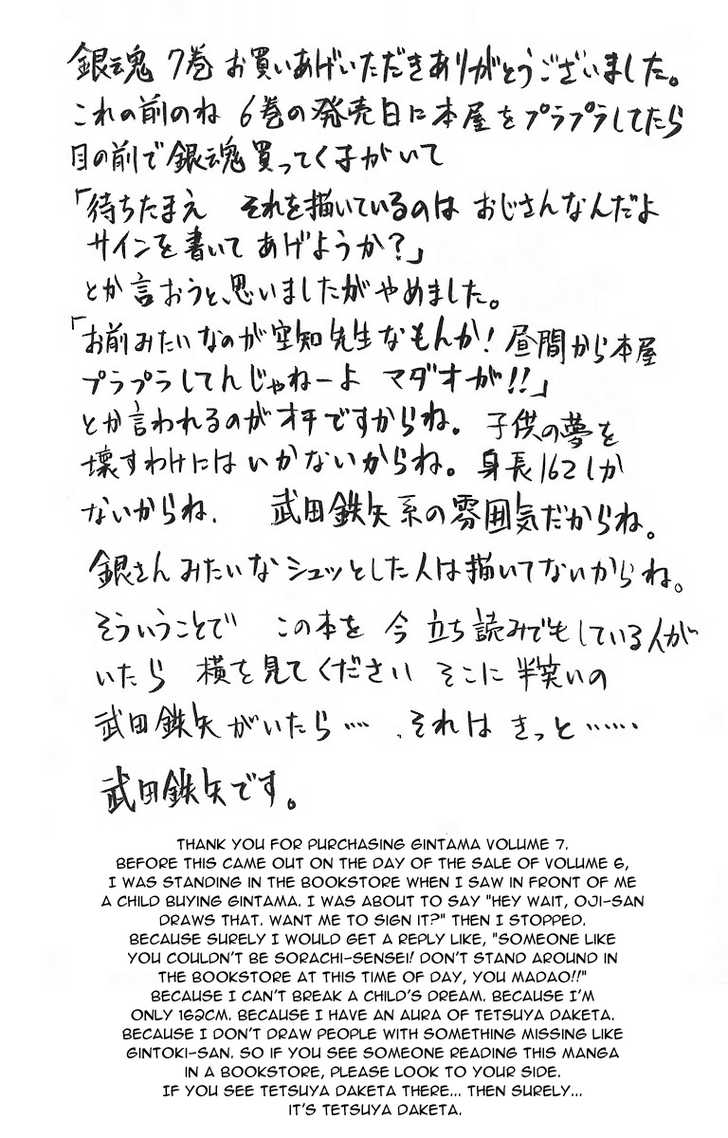 銀魂 7巻 お買いあげいただきありがとうございました。
これの前のね 6巻の発売日に本屋をプラプラしてたら
目の前で銀魂買ってく子がいて
「待ちたまえ それを描いているのは おじさんなんだよ
サインを書いて あげようか?」
とか言おうと、思いましたがやめました。
「お前みたいなのが空知先生なもんか! 昼間から本屋
プラプラしてんじゃねーよ マダオが!!」
とか言われるのがオチですからね。 子供の夢を
壊すわけにはいかないからね。 身長162しか
ないからね. 武田鉄矢系の雰囲気だからね。
銀さんみたいなシュッとした人は描いてないからね。
そういうことで この本を 今 立ち読みでもしている人が
いたら 横を見てください そこに 半笑いの
武田鉄矢がいたら…. それは きっと……
武田鉄矢です。
THANK YOU FOR PURCHASING GINTAMA VOLUME 7.
BEFORE THIS CAME OUT ON THE DAY OF THE SALE OF VOLUME 6,
I WAS STANDING IN THE BOOKSTORE WHEN I SAW IN FRONT OF ME
A CHILD BUYING GINTAMA. I WAS ABOUT TO SAY "HEY WAIT, OJI-SAN
DRAWS THAT. WANT ME TO SIGN IT?" THEN I STOPPED.
BECAUSE SURELY I WOULD GET A REPLY LIKE, "SOMEONE LIKE
YOU COULDN'T BE SORACHI-SENSEI! DON'T STAND AROUND IN
THE BOOKSTORE AT THIS TIME OF DAY, YOU MADAO!!"
BECAUSE I CAN'T BREAK A CHILD'S DREAM. BECAUSE I'M
ONLY 162CM. BECAUSE I HAVE AN AURA OF TETSUYA DAKETA.
BECAUSE I DON'T DRAW PEOPLE WITH SOMETHING MISSING LIKE
GINTOKI-SAN. SO IF YOU SEE SOMEONE READING THIS MANGA
IN A BOOKSTORE, PLEASE LOOK TO YOUR SIDE.
IF YOU SEE TETSUYA DAKETA THERE... THEN SURELY...
IT'S TETSUYA DAKETA.